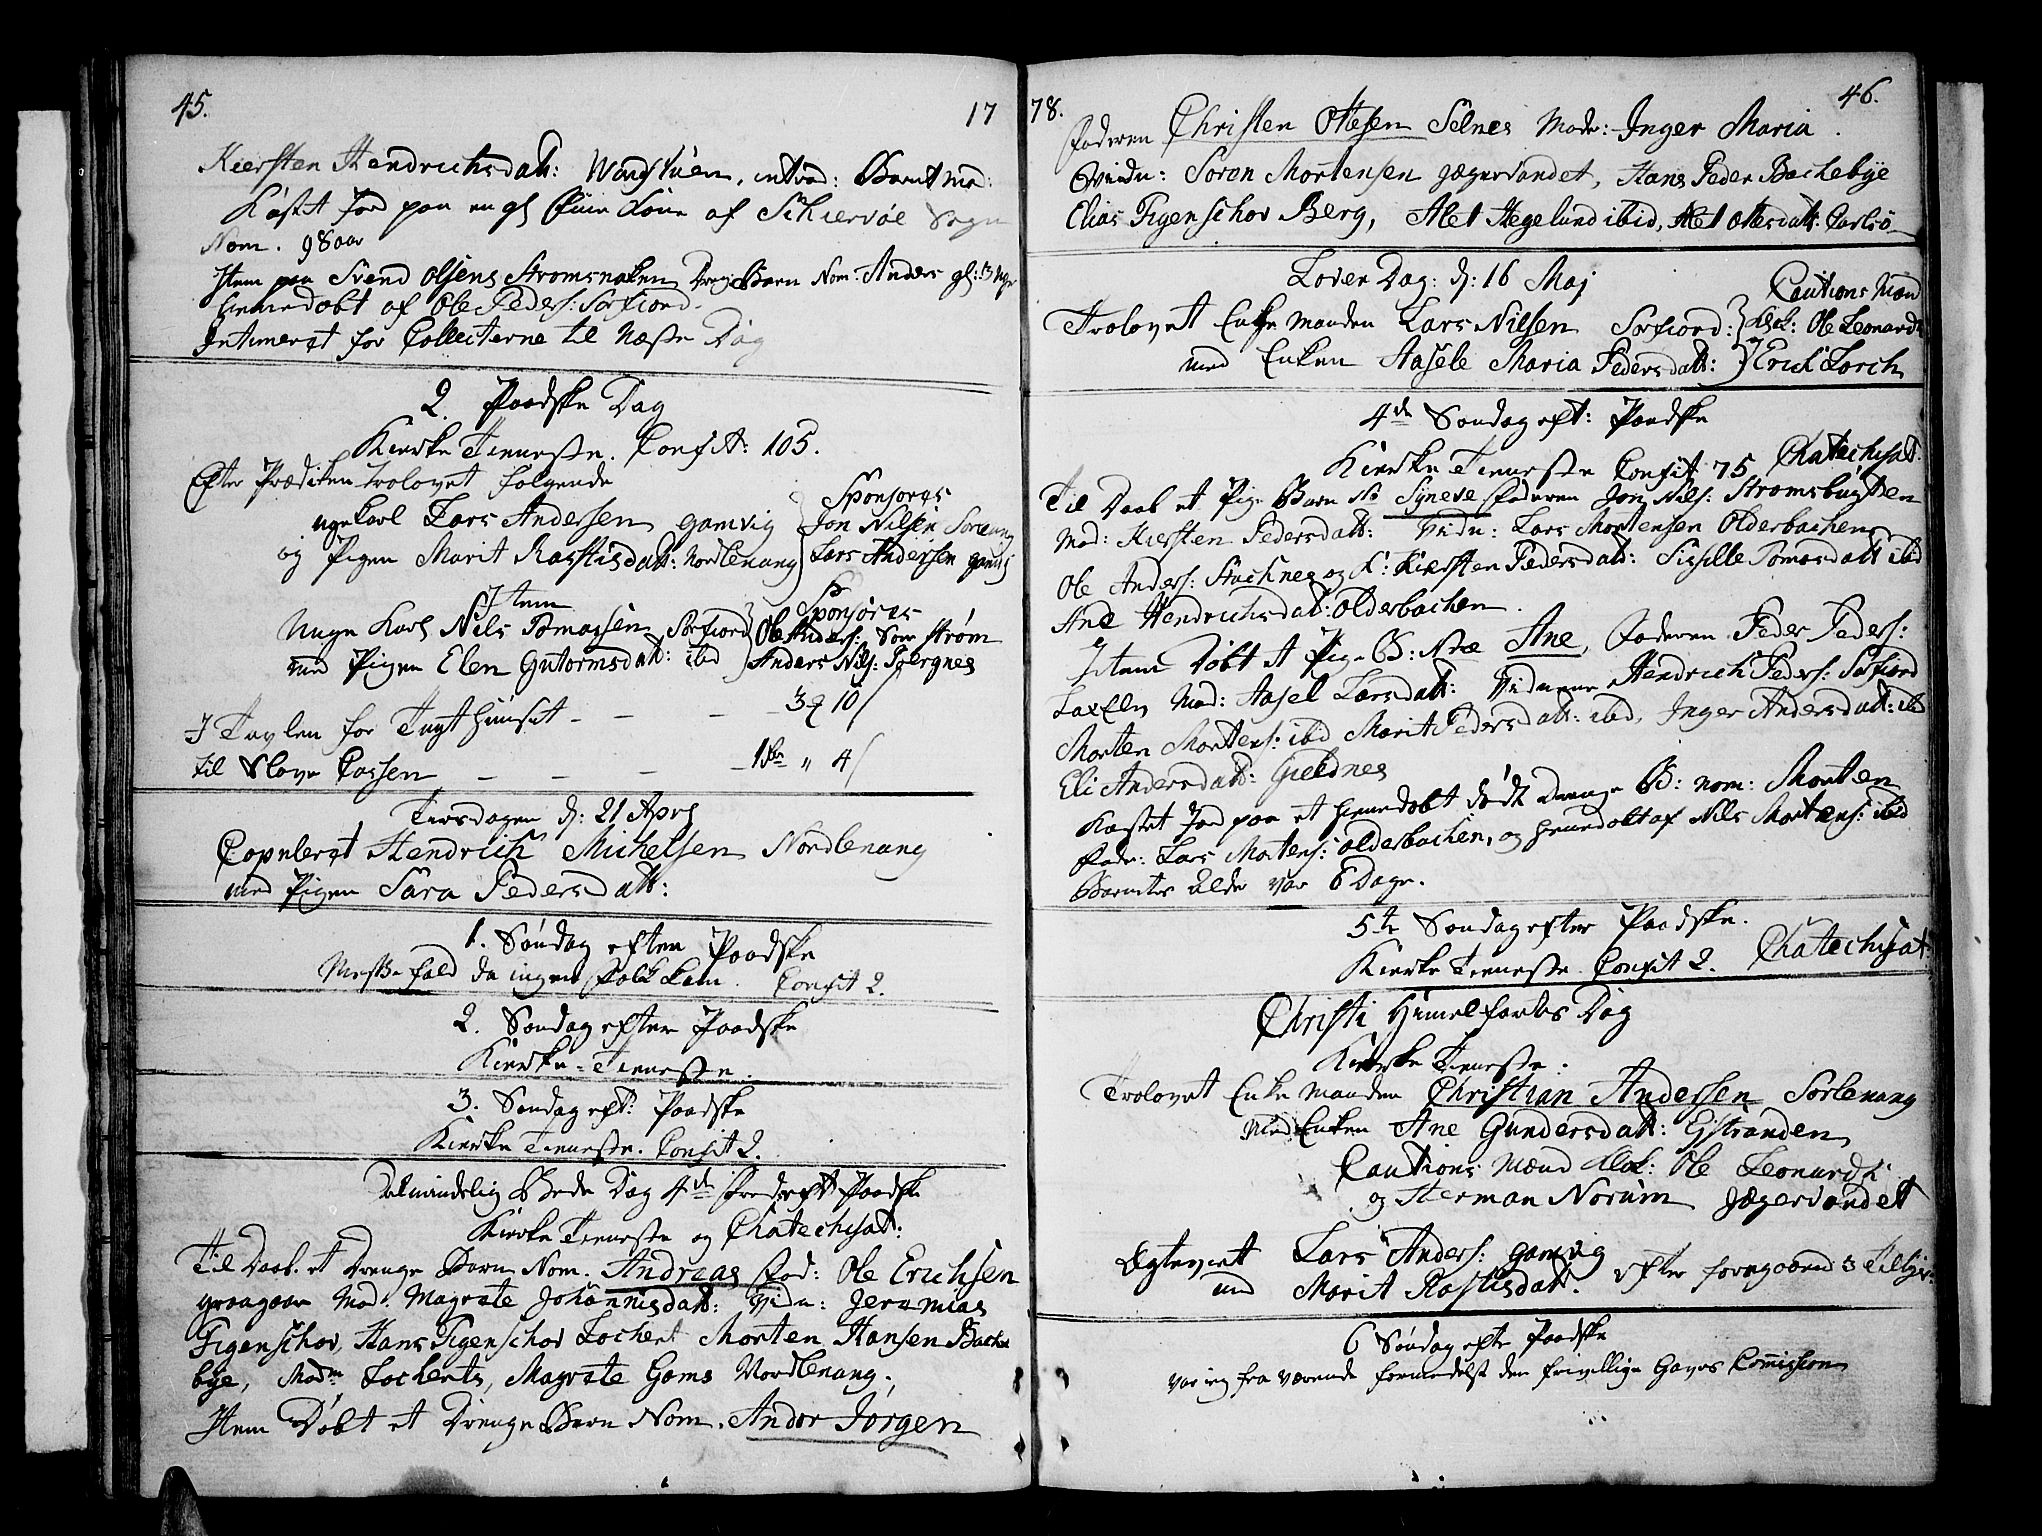 45.
17
Kiersten Hendrichsdatt: Wangstuen, introd: Barnt Mod:
Kastet Jord paa en gl Qvin Lone af Schiervøe Sogn
Nom. 98 aar
Item paa Svend Olsens Stromsnaken Dreng Barn Nom: Anders gl: 3 Uger
hiemedøbt af Ole Peders: Sorfiord.
Intimeret for Collecterne til Næste Dag
2. Paadske Dag
Kierke Tieneste. Confit: 105.
Efter Prædiken trolovet følgende
ungekarl Lars Andersen Gamvig
og Pigen Marit Rasftisdatt: Nordlenang
Sponsores
Jon Nilsen Sorlenang
Lars Andersen Gamvig
Item
Unge Karl Nils Tomassen Sorfiord
med Pigen Elen Gutormsdatt: ibid
Sponsores
Ole Anders: Sør strøm
Anders Nils: Goesnes
I Tavlen for Tugt Huuset - - - 3 10
til Slave Cassen - - - - 1 " 4
Tiersdagen d: 21 April
Copuleret Hendrich Michelsen Nordlenang
med Pigen Sara Pedersdatt:
1. Søndag efter Paadske
Messe fald da ingen Folk kom. Confit 2.
2. Søndag efter Paadske
Kierke-Tieneste.
3. Søndag eft: Paadske
Kierke Tieneste. Confit 2.
Dalmindelig Bede Dag 4de Fred: eft Paadske
Kierke Tieneste og Chatechisat:
Til Daab. et Drenge Barn Nom. Andreas Fad: Ole Erichsen
graagaas Mod: Magrete Johannisdatt: Vidn: Jeremias
Figenschov, Hans Figenschov Lochert Morten Hansen Bache
bye, Madm Locherts, Magrete Gams Nordlenang.
Item Døbt et Drenge Barn Nom. Andor Jorgen
78.
46.
Faderen Christen Ottesen Selnes Mode: Inger Maria.
Qvidn: Soron Mortensen Jægervandet, Hans Peder Bachebye
Elias Figenschov Berg, Alet Hegelund ibid, Alet Ottesdatt: Carlsø
Løver Dag: d: 16 Maj
Trolovet Enke Manden Lars Nilsen Sorfiord:
med Enken Aasele Maria Pedersdatt:
Cautions Mænd
Klok: Ole Leonardi
Erich Lorch
4de Søndag eft: Paadske
Kierke Tieneste Confit 75 Chatechisat.
Til Daab et Pige Barn No Syneve Faderen Jon Nils: Stromsbugten
Mod: Kiersten Pedersdatt: Vidn: Lars Mortensen Olderbachen
Ole Anders: Stachnes og K: Kiersten Pedersdatt: Sisille Tomasdatt ibid
Ane Hendrichsdatt: Olderbachen.
Item Døbt et Pige B: Nom Ane, Faderen Peder Peders:
Laxelv Mod: Aasel Larsdatt: Vidnerne Hendrich Peders: Sorfiord
Morten Mortens: ibid Marit Pedersdatt: ibid, Inger Andersdatt: ibid
Eli Andersdatt: Gieldnes
Kastet Jord paa et hiemedøbt dødt Drenge B: nom: Morten
Fade: Lars Mortens: Olderbachen, og hiemdøbt af Nils Mortens: ibid
Barnetes Alder var 6 Dage.
5te Søndag efter Paadske.
Kierke Tieneste. Confit 2. Chatechisat
Christi Himelfartes Dag
Kierke Tieneste.
Trolovet Enke Manden Christian Andersen Sorlenang
Med Enken Ane Gundersdatt: Ejstranden
Cautions Mænd Klok: Ole Leonardi
og Herman Norum Jægervandet
Egteviet Lars Anders: Gamvig
med Marit Rasftisdatt. efter foregaaend 3 Tillys:
6 Søndag efter Paadske
var jeg fra værende formedelst den frivillige Gaves Commission